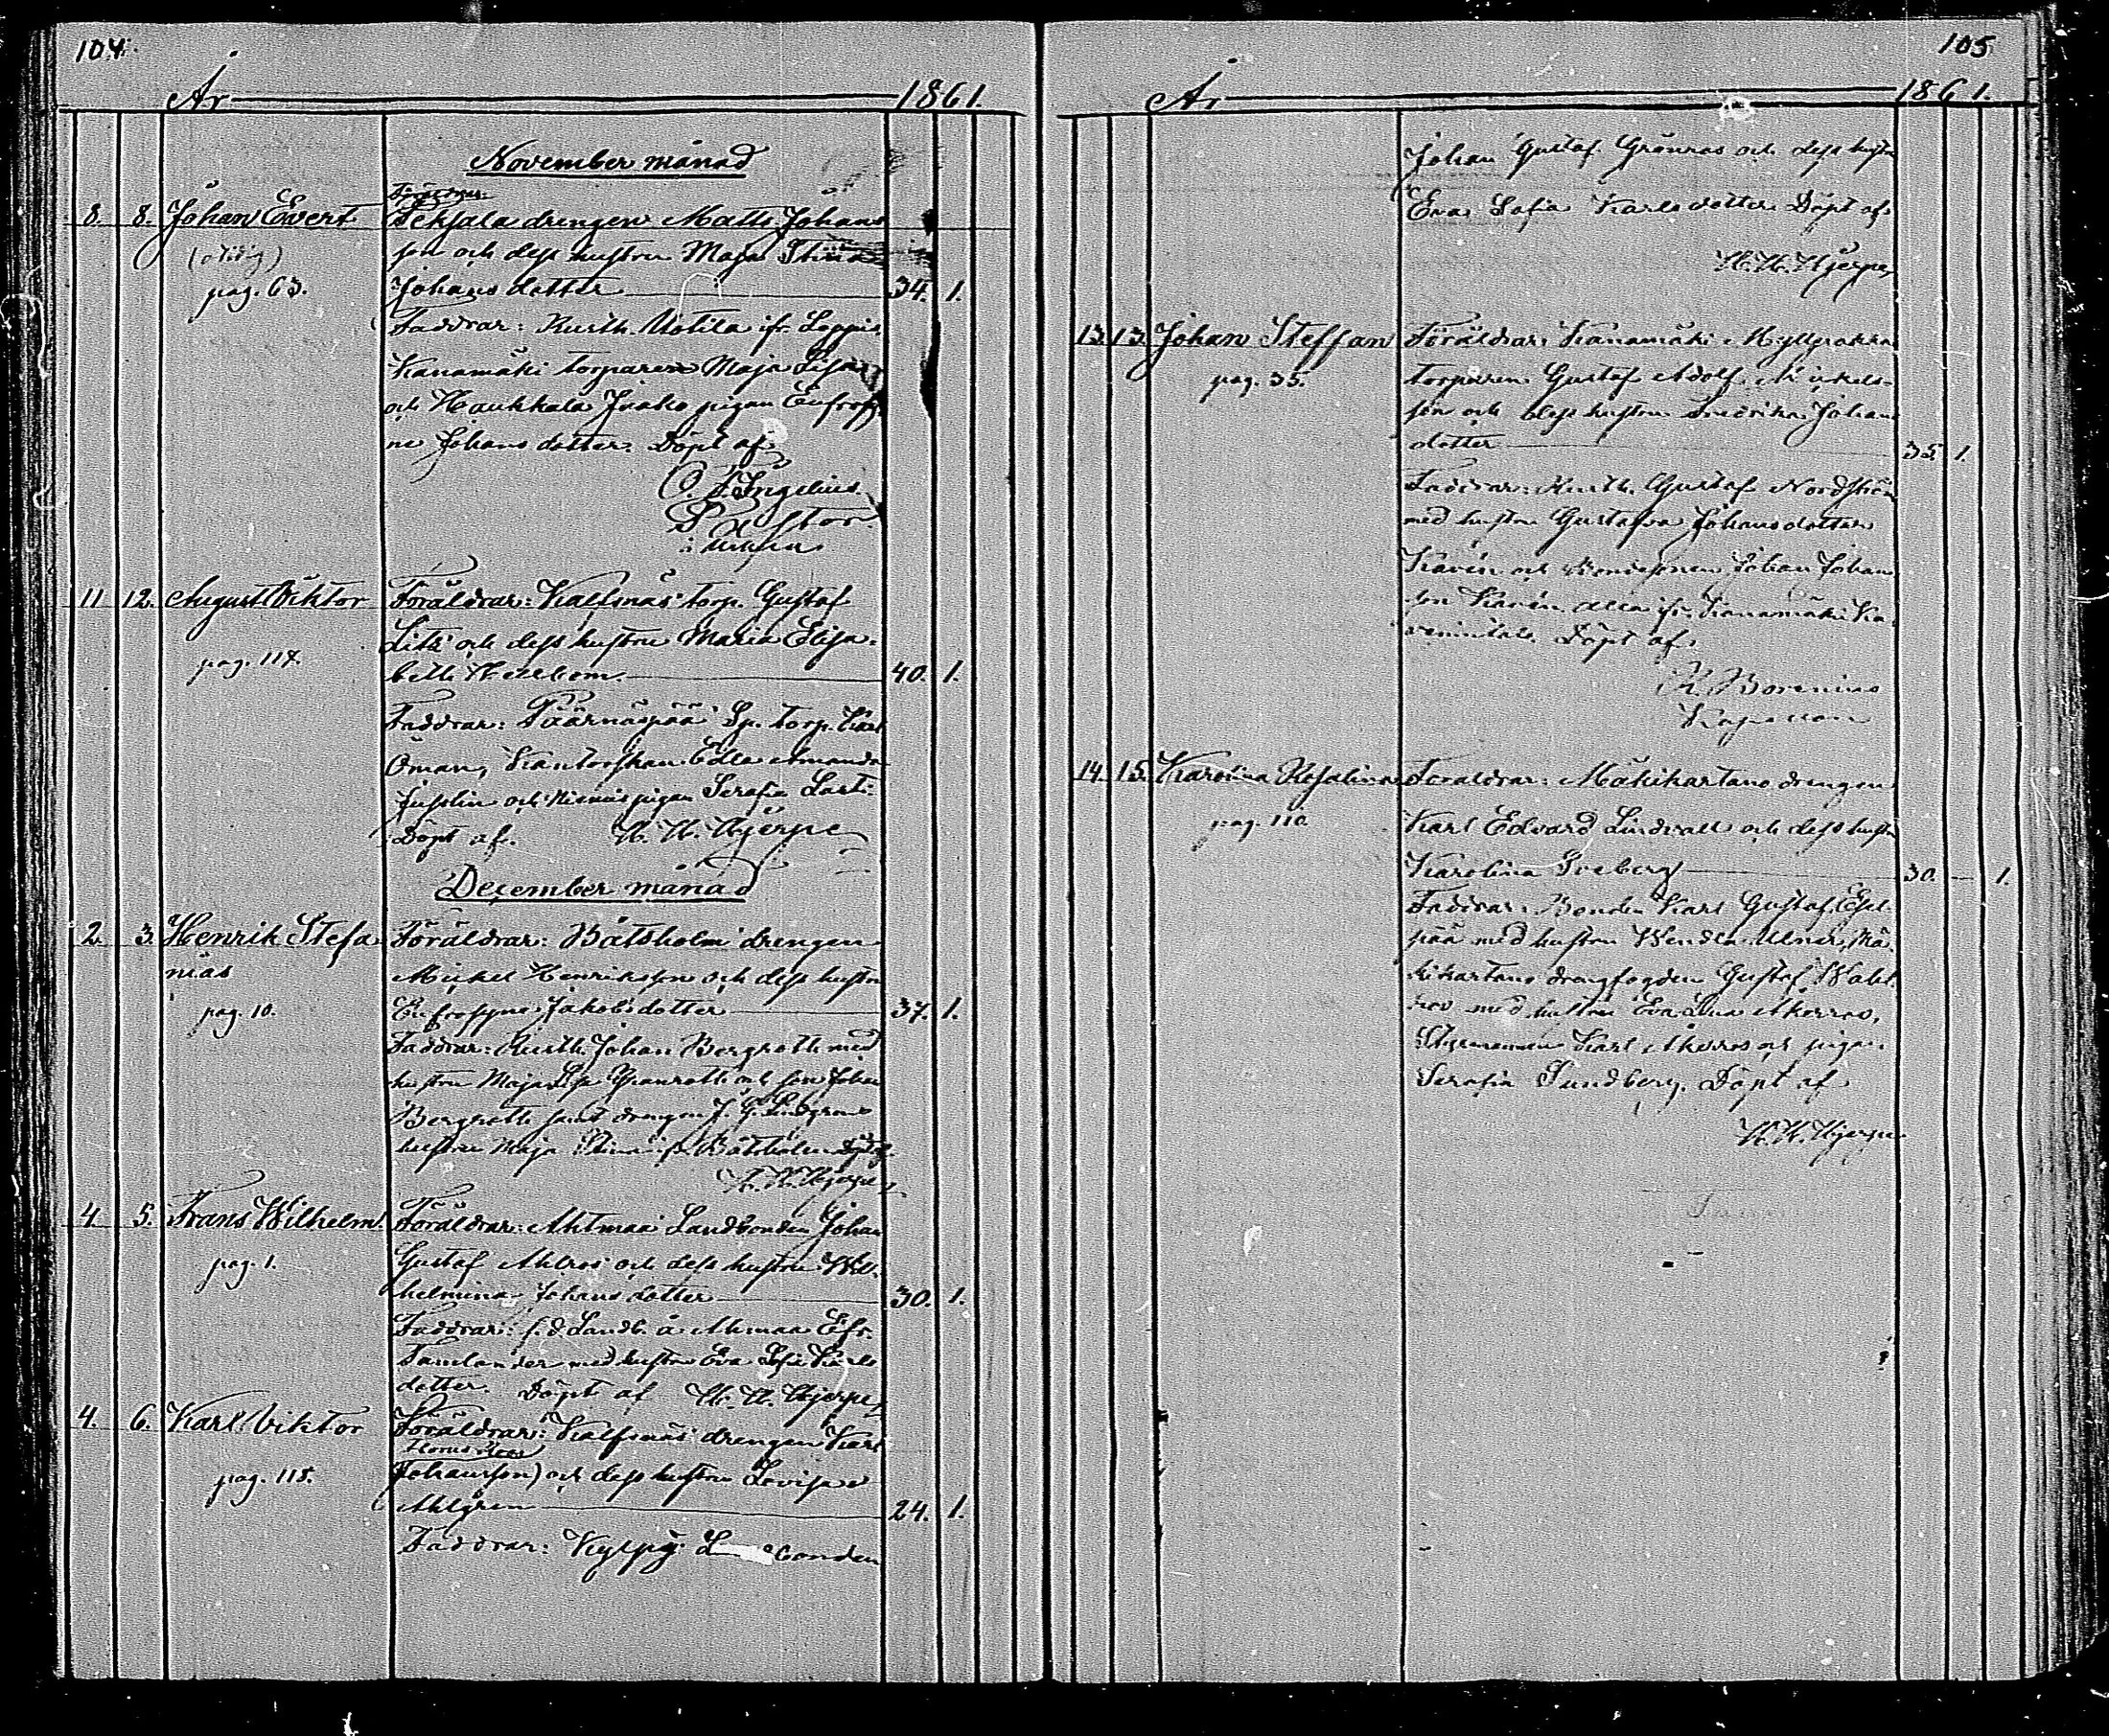 104.
År 1861.
November månad
Föräldrar:
8. 8. Johan Evert Teksala drengen Matts Johans
(oktig) son och dess hustru Maja Stina
pag. 63. Johansdotter 34. 1.
Faddrar: Rusth. Uotila ifr. Loppis
Kanamäki torparen Maja Lisa
och Haukkala Jaako pigan Eufrosy
ne Johansdotter. Döpt af
Pastor
11 12. August Viktor Föräldrar: Kalfsnäs torp. Gustaf
Litz och dess hustru Maria Elisa-
pag. 117. beth 40. 1.
Faddrar: Päärnäspää Sp. torp. Karl
Öman, Kantorskan Edla Amanda
Juslin och Niemis pigan Serafia Lasti.
Döpt af. H. H. Hjerpe
December månad
2. 3. Henrik Stefa Föräldrar: Båtsholm drengen
nias Mickel Henriksson och dess hustru
pag. 10. Eufrosyne Jakobsdotter 37. 1.
Faddrar: Rusth. Johan Bergroth med
hustru Maja Lisa Granroth och son Johan
Bergroth samt drengen J. G. Lindgrens
hustru Maja Stina ifr. Båtsholm Döpt af
H. H. Hjerpe
4. 5. Frans Wilhelm. Föräldrar: Ahtmaa Landbonden Johan
pag. 1. Gustaf Ahlros och dess hustru Wil-
helmina Johansdotter 30. 1.
Faddrar: f. d. Landb. å Ahmaa Efr.
Tamlander med hustru Eva Sofia Karls
dotter. Döpt af H. H. Hjerpe
4. 6. Karl Viktor Föräldrar: Kalfsnäs drengen Karl
pag. 118. Johansson) och dess hustru Lovisa
Ahlgren 24. 1.
Faddrar: bonden
105
År 1861.
Johan Gustaf Grönros och dess hustru
Eva Sofia Karlsdotter Döpt af
H. H. Hjerpe
13. 13. Johan Steffan Föräldrar: Kanamäki Myllyrakka
pag. 35. torparen Gustaf Adolf Mickels-
son och dess hustru Fredrika Johans
dotter 35. 1.
Faddrar: Rusth. Gustaf Nordström
med hustru Gustafva Johansdotter
Kavén och Bondesonen Johan Johans
son Kavén alla ifr. Kanamäki Ka
venintalo. Döpt af
K. Borenius
Kapellan
14. 15. Karolina Rosalina Föräldrar: Mäkikartano drengen
pag. 110. Karl Edvard Lindvall och dess hustru
Karolina Sveberg 30. 1.
Faddrar: Bonden Karl Gustaf Esel
pää med hustru Wendla Ulner, Mä-
kikartano drengfogden Gustaf Wahl
ros med hustru Eva Lena Åkerros,
Styrmannen Karl Åkerros och pigan
Serafia Sundberg. Döpt af
H. H. Hjerpe